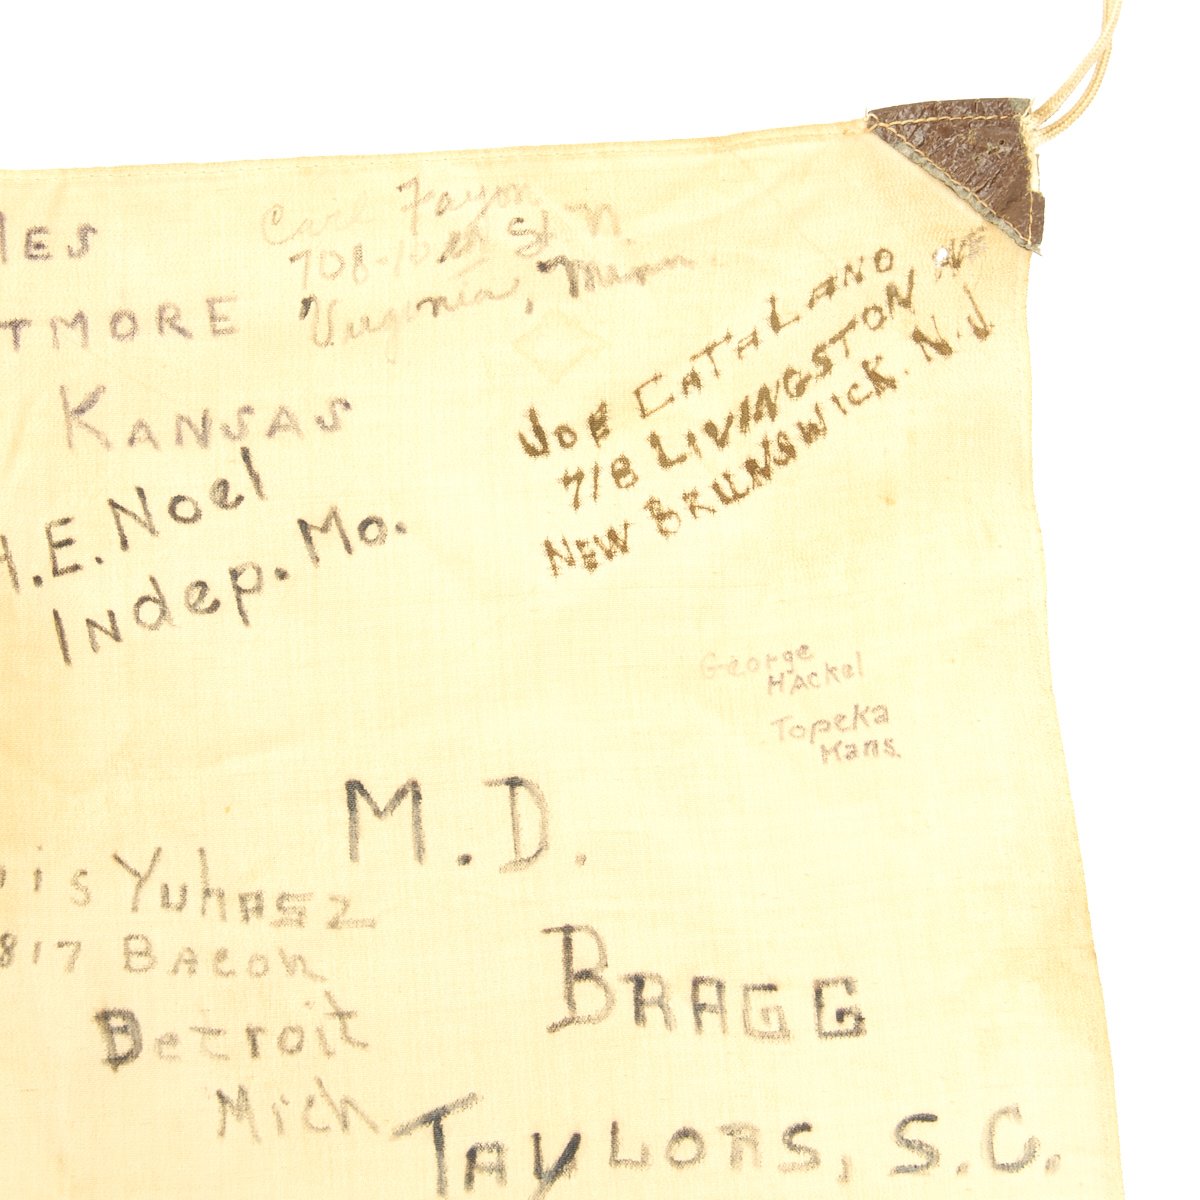 ES
TMORE
KANSAS
Carl Fayon
708-10th St N.
Virginia, Minn
JOE CATALANO
718 LIVINGSTON AVE
NEW BRUNSWICK. N.J.
H.E. Noel
Indep. Mo.
George
HACkel
Topeka
Kans.
M.D.
BRAGG
TAYLORS, S.C.
is YuhASz
817 BACON
Detroit
Mich